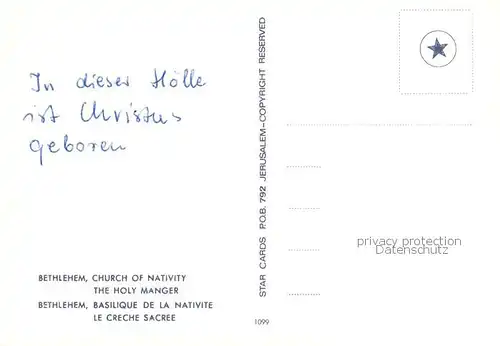 In dieser Hölle
ist Christus
geboren
BETHLEHEM, CHURCH OF NATIVITY
THE HOLY MANGER
BETHLEHEM, BASILIQUE DE LA NATIVITE
LE CRECHE SACREE
STAR CARDS P.O.B. 792 JERUSALEM–COPYRIGHT RESERVED
1099
privacy protection
Datenschutz